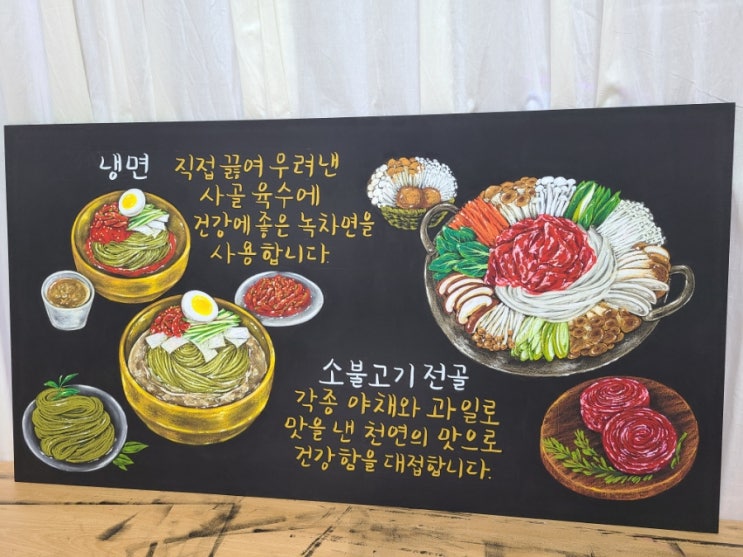 냉면
직접 끓여 우려낸
사골 육수에
건강에 좋은 녹차면을
사용합니다.
소불고기 전골
각종 야채와 과일로
맛을 낸 천연의 맛으로
건강함을 대접합니다.